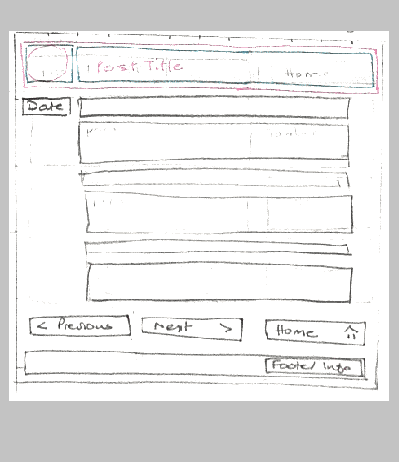 Post Title
Home
Date
< Previous
Next >
Home
Footer Info